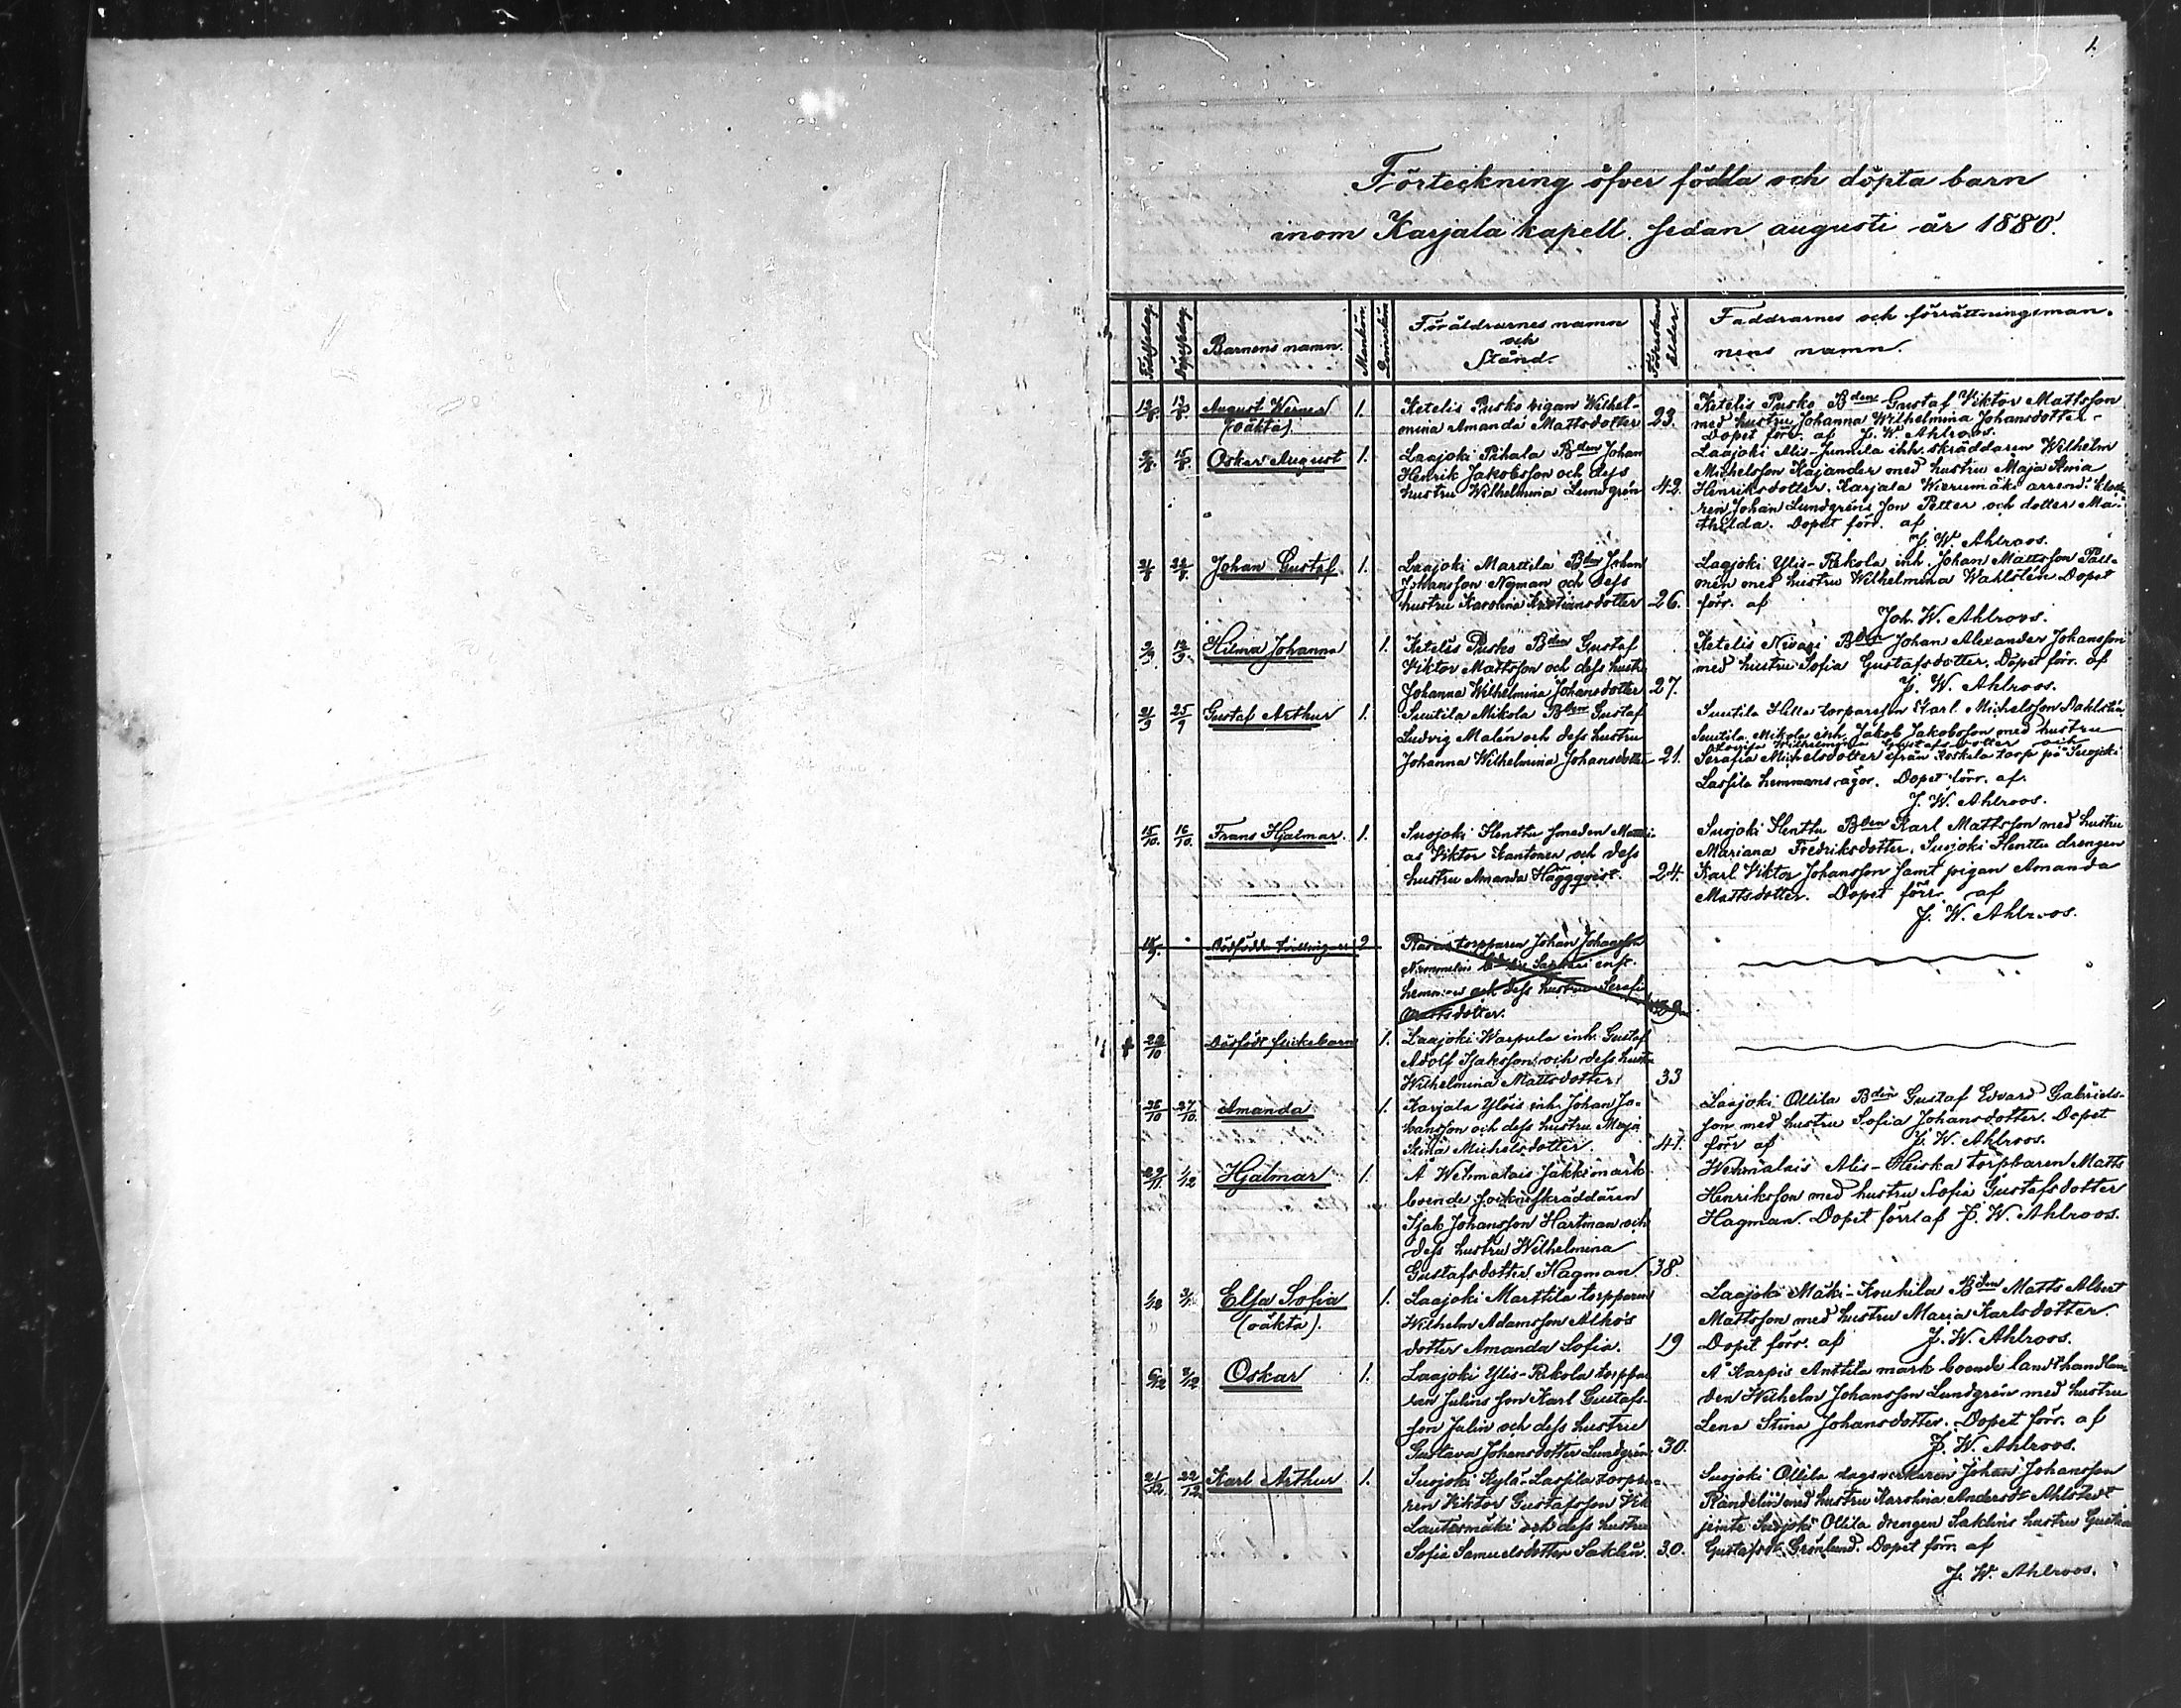 1.
Förteckning öfver födda och döpta barn
inom Karjala kapell sedan augusti år 1880.
Födelsedag.
Döpelsedag.
Barnens namn.
Mankön.
Qvinkön.
Föräldrarnes namn
och
Stånd.
Föderskans ålder.
Faddrarnes och förrättningsman-
nens namn.
12/8. 13/8. August Werner 1. Ketelis Pusko pigan Wilhel- 23.
(oäkta). mina Amanda Mattsdotter
Ketelis Pusko Bden Gustaf Viktor Mattsson
med hustru Johanna Wilhelmina Johansdotter.
Dopet förr. af J. W. Ahlroos.
15/8. Oskar August 1. Laajoki Pihala Bden Johan
Henrik Jakobsson och dess
hustru Wilhelmina Lundgrén 42.
Laajoki Alis-Junnila inh. skräddaren Wilhelm
Michelsson Kajander med hustru Maja Stina
Henriksdotter. Karjala Wierumäki arrend. klocka-
ren Johan Lundgréns son Petter och dotter Ma-
thilda. Dopet förr. af
J. W. Ahlroos.
21/8 22/8. Johan Gustaf 1. Laajoki Marttila Bden Johan
Johansson Nyman och dess
hustru Karolina Kristiansdotter 26.
Laajoki Ylis-Rekola inh. Johan Mattsson Päll-
nén med hustru Wilhelmina Wahlstén. Dopet
förr. af
Joh. W. Ahlroos.
9/9. 12/9. Hilma Johanna 1. Ketelis Pusko Bden Gustaf
Viktor Mattsson och dess hustru
Johanna Wilhelmina Johansdotter 27.
Ketelis Bden Johan Alexander Johansson
med hustru Sofia Gustafsdotter. Dopet förr. af
J. W. Ahlroos.
21/9 25/9 Gustaf Arthur 1. Suutila Mikola Bden Gustaf
Ludvig Malén och dess hustru
Johanna Wilhelmina Johansdotter 21.
Suutila torparesson Karl Michelsson Dahlstén
Suutila Mikola inh. Jakob Jakobsson med hustru
Lovisa Wilhelmina Gustafsdotter och
Serafia Michelsdotter från Koskela torp på Suojoki
Lassila hemmans ägor. Dopet förr. af.
J. W. Ahlroos.
15/10. 16/10. Frans Hjalmar. 1. Suojoki Henttu smeden Matti-
as Viktor Kantonen och dess
hustru Amanda Häggqvist. 24.
Suojoki Henttu Bden Karl Mattsson med hustru
Mariana Fredriksdotter. Suojoki Henttu drengen
Karl Viktor Johansson samt pigan Amanda
Mattsdotter. Dopet förr. af
J. W. Ahlroos.
Dödfödda tvillingar 2 torpparen Johan Johansson
hemman och dess hustru Serafia
39
22/10 Dödfödt flickebarn 1. Laajoki Warpula inh. Gustaf
Adolf Isaksson och dess hustru
Wilhelmina Mattsdotter. 33
25/10 27/10. Amanda 1. Karjala Ylöis inh. Johan Jo-
hansson och dess hustru Maja
Stina Michelsdotter. 41.
Laajoki Ollila Bden Gustaf Edvard Gabriels-
son med hustru Sofia Johansdotter. Dopet
förr af J. W. Ahlroos.
29/11. 1/12 Hjalmar 1. Å Wehmalais Jäkki mark
boende sockneskräddaren
Isak Johansson Hartman och
dess hustru Wilhelmina
Gustafsdotter Hagman 38.
Wehmalais Alis-Heiska torpparen Matts
Henriksson med hustru Sofia Gustafsdotter
Hagman. Dopet förr af J. W. Ahlroos.
1/12 Elsa Sofia 1. Laajoki Marttila torpparen
(oäkta). Wilhelm Adamsson Alhos
dotter Amanda Sofia. 19
Laajoki Mäki-Kouhila Bden Matts Albert
Mattsson med hustru Maria Karlsdotter.
Dopet förr. af J. W. Ahlroos.
6/12 8/12 Oskar 1. Laajoki Ylis-Rekola torppa-
ren Julins son Karl Gustafs-
son Julin och dess hustru
Gustava Johansdotter Lundgrén 30.
Å Karpis Anttila mark boende landthandlan-
den Wilhelm Johansson Lundgrén med hustru
Lena Stina Johansdotter. Dopet förr. af
J. W. Ahlroos.
21/12. 22/12. Karl Arthur 1. Suojoki Kylä-Lassila torppa-
ren Viktor Gustafsson
Lautesmäki och dess hustru
Sofia Samuelsdotter Saklin. 30.
Suojoki Ollila dagsverkaren Johan Johansson
Randelin med hustru Karolina Andersdr Ahlstedt
jemte Suojoki Ollila drengen Saklins hustru Gustava
Gustafsdr Grönlund. Dopet förr. af
J. W. Ahlroos.